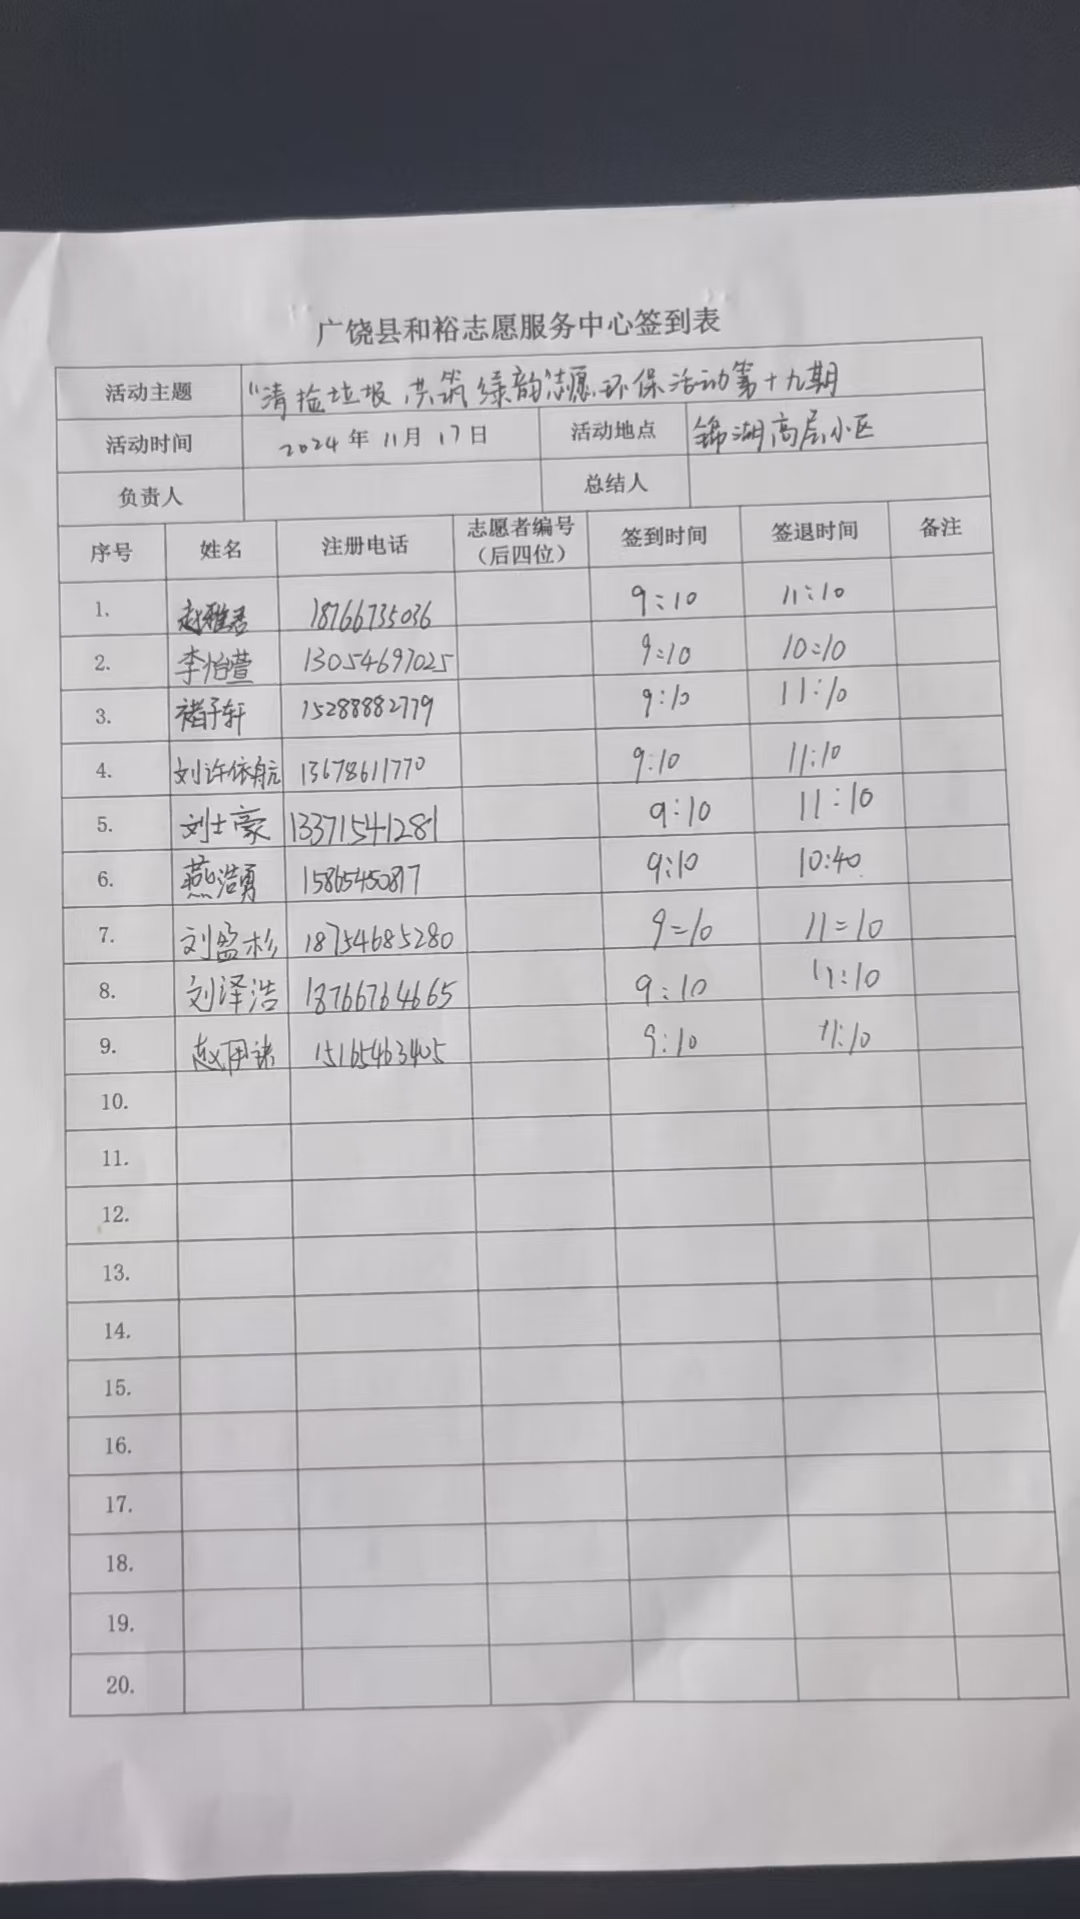 广饶县和裕志愿服务中心签到表
活动主题 “清捡垃圾,共筑绿韵志愿环保活动第十九期
活动时间 2024年11月17日 活动地点 锦湖高层小区
负责人 总结人
序号 姓名 注册电话 志愿者编号（后四位） 签到时间 签退时间 备注
1. 赵雅君 18766735036 9:10 11:10
2. 李怡萱 13054697025 9:10 10:10
3. 褚子轩 15288882779 9:10 11:10
4. 刘许依航 13678611770 9:10 11:10
5. 刘士豪 13371541281 9:10 11:10
6. 燕浩勇 15865450817 9:10 10:40
7. 刘盈杉 18754685280 9=10 11=10
8. 刘泽浩 18766764665 9:10 11:10
9. 赵 15165463405 9:10 11:10
10.
11.
12.
13.
14.
15.
16.
17.
18.
19.
20.